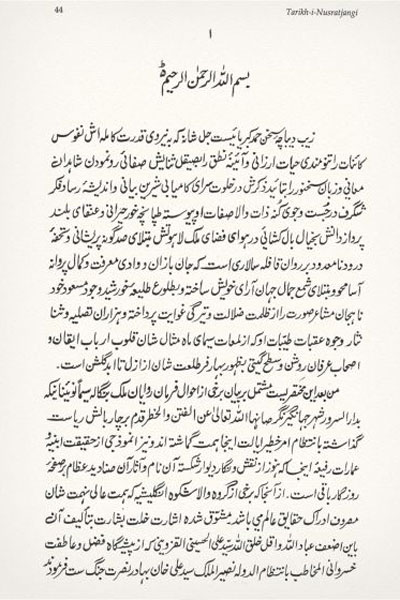 44 Tarikh-i-Nusratjangi
۱
بسم اللہ الرحمٰن الرحیم
زیب دیباچۂ سخن حمد کبریائیست جل شانہ کہ بہ نیروی قدرت کاملہ اش نفوس
کائنات را تنومندی حیات ارزانی و آئینۂ نطق را بصیقل ثنایش صفائی رو نمودن شاهدان
معانی و زبان سخنور را بتائید ذکرش در خلوت سرای کامیابی شرین بیانی و اندیشۂ رسا و فکر
شگرف در جست و جوی کنه ذات والا صفات او پیوسته طپانچه خور حیرانی و عنقای بلند
پرواز دانش بخیال بال کشائی در هوای فضای ملک لاهوتش مبتلای صد گونه پریشانی و تحفۂ
درود نامعدود بر روان قافله سالاری است که جان بازان وادی معرفت و کمال پروانه
آسا محو و مبتلای شمع جمال جهان آرای خویش ساخته و بطلوع طلیعه خورشید وجود مسعود خود
ناهجان مشاعر صورت را از ظلمت ضلالت و تیرگی غوایت پرداخته و هزاران تصلیه و ثنا
نثار وجوه عقبات طیبات او که از لمعات سیمای ماه مثال شان قلوب ارباب ایقان و
اصحاب عرفان روشن و سطح گیتی بظهور بهار فر طلعت شان از ازل تا ابد گلشن است.
من بعد این مختصریست مشتمل بر بیان برخی از احوال فرمان روایان ملک بنگاله سیما نوئینانیکه
بدار السرور شهر جهانگیر نگر صانها الله تعالی عن الفتن و الخطر قدم بر چار بالش ریاست
گذاشته بانتظام امر خطیر ایالت اینجا همت گماشته اند و نیز انموذجی از حقیقت ابنیۂ
عمارات رفیعۂ اینجا که هنوز از نقش و نگار در و دیوار شکسته آن نام و آثار آن صنادید عظام بر صفحۂ
روزگار باقی است. از آنجا که برخی از گروه والا شکوه انگلیشیه که همت عالی نهمت شان
مصروف ادراک حقایق عالم می باشد مشتوق شده اشارت خلت بشارت بتالیف آن
باین اضعف عباد الله و اقل خلق الله سید علی الحسینی القزوینی که از پیشگاه فضل و عاطفت
خسروانی المخاطب بانتظام الدوله نصیر الملک سید علی خان بهادر نصرت جنگ ست فرمودند